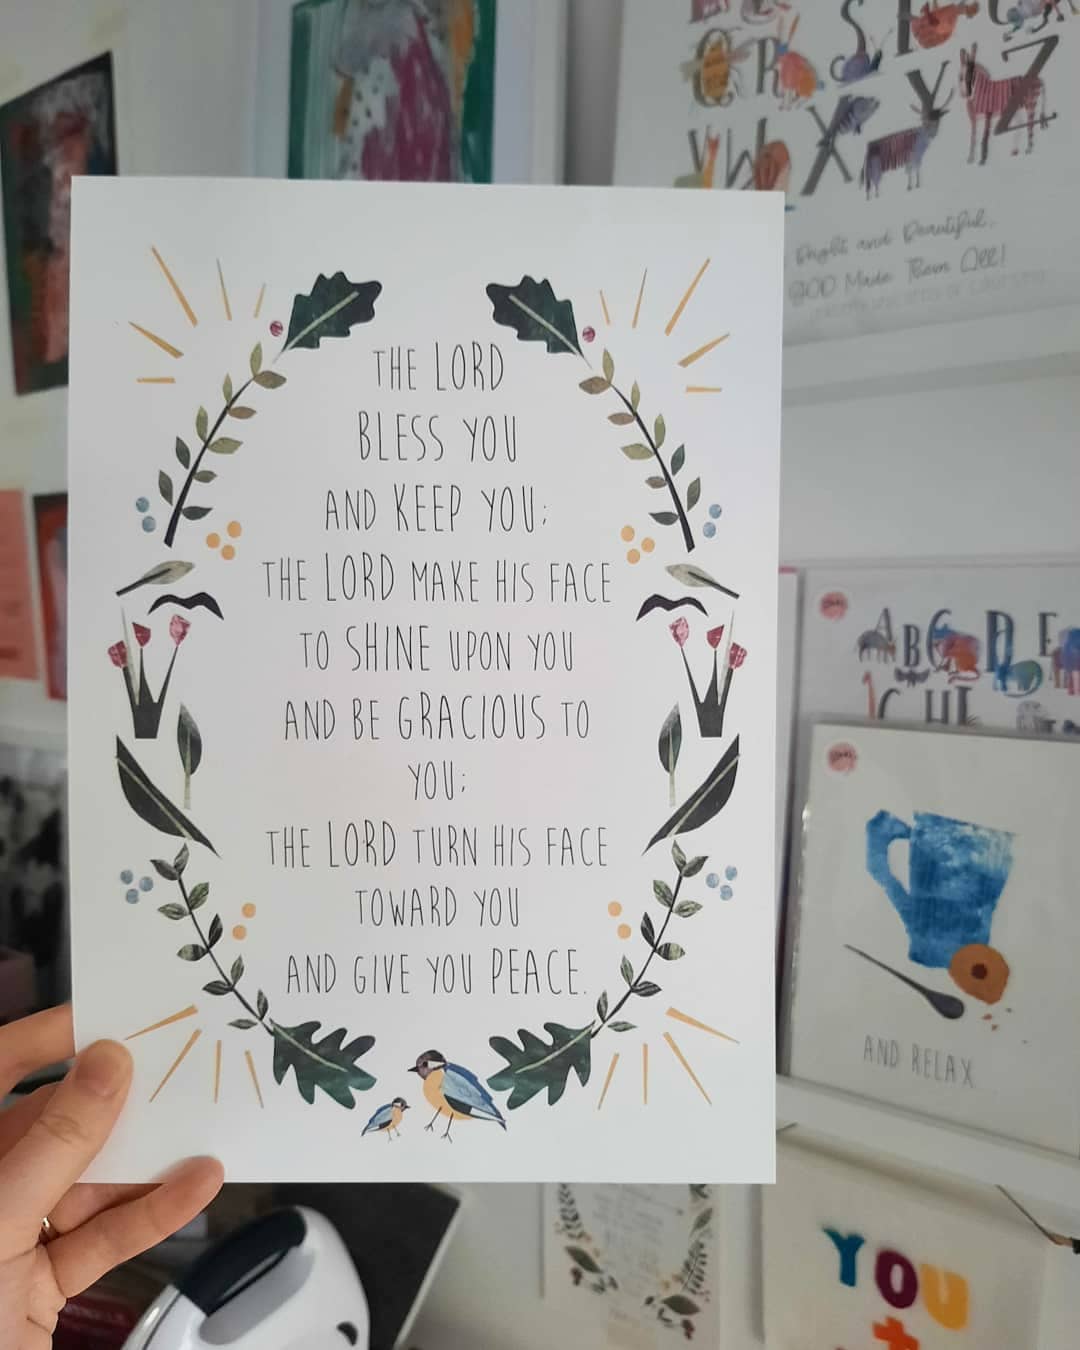 THE LORD
BLESS YOU
AND KEEP YOU;
THE LORD MAKE HIS FACE
TO SHINE UPON YOU
AND BE GRACIOUS TO
YOU;
THE LORD TURN HIS FACE
TOWARD YOU
AND GIVE YOU PEACE.
Q R S T
V W X Y Z
Bright and Beautiful,
GOD Made Them All!
A B C D E
G H I
AND RELAX
YOU